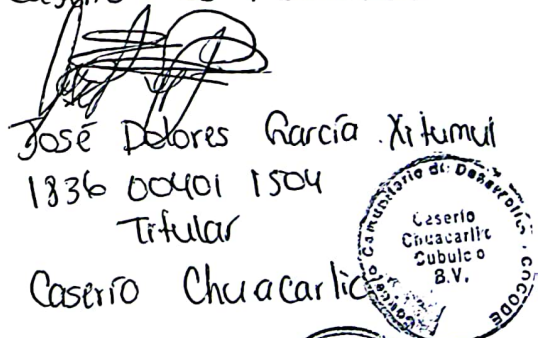 José Dolores García Xitumul
1836 00401 1504
Titular
Caserío Chuacarlic
Consejo Comunitario de Desarrollo · COCODE
Caserío
Chuacarlic
Cubulco
B.V.